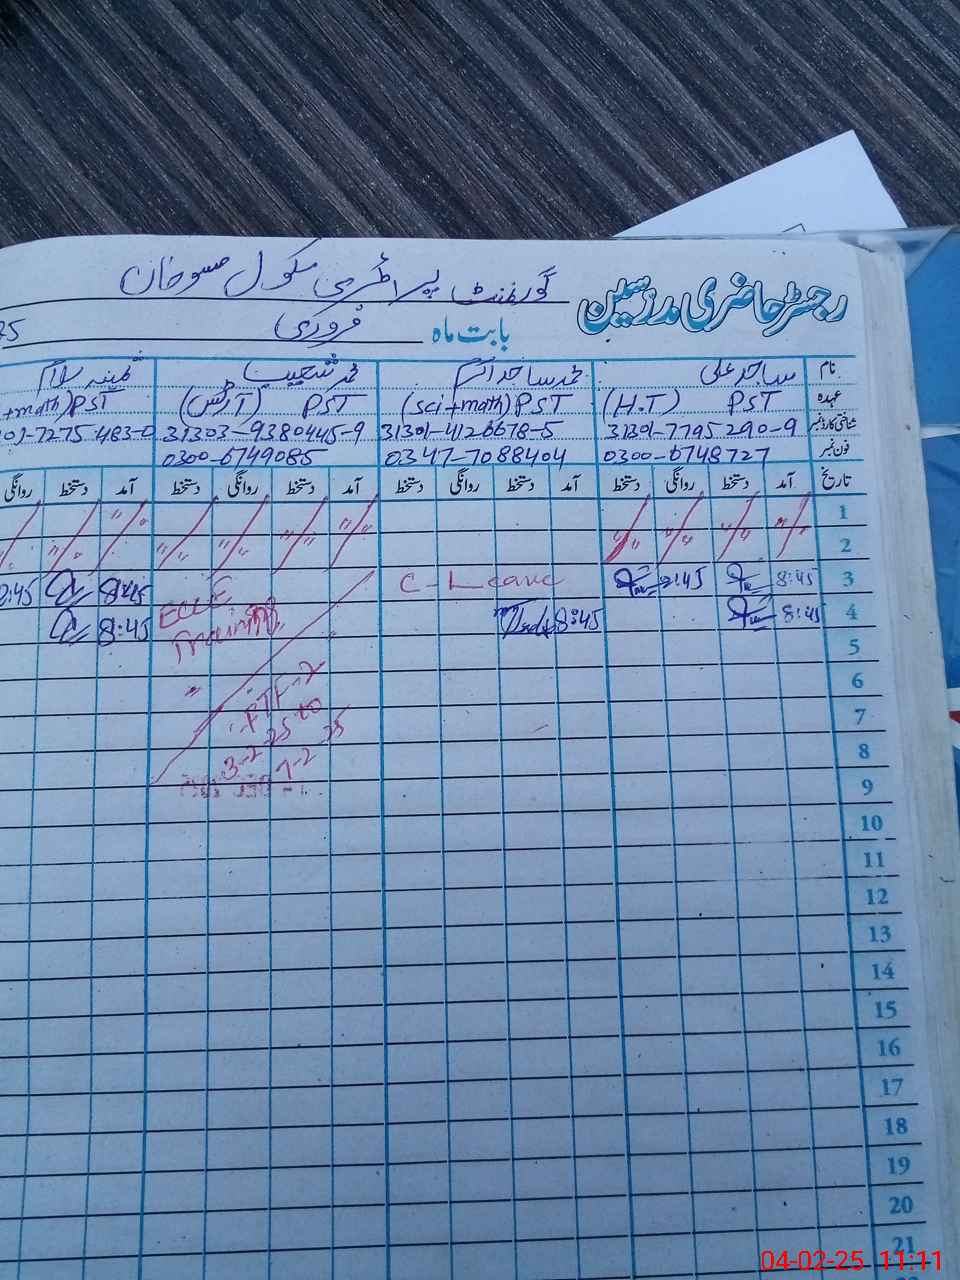 رجسٹر حاضری مدرسین گورنمنٹ پرائمری سکول
بابت ماہ فروری
نام ساجد علی محمد ساجد اکرم محمد شعیب ثمینہ
عہدہ PST (H.T) PST (sci+math) PST (آرٹس) PST (+math)
شناختی کارڈ نمبر 31301-7795290-9 31301-4126678-5 31303-9380445-9 01-7275483-0
فون نمبر 0300-6748727 0347-7088404 0300-6749085
تاریخ آمد دستخط روانگی دستخط آمد دستخط روانگی دستخط آمد دستخط روانگی دستخط آمد دستخط روانگی
1
2
3 8:45 2:45 C-Leave ECCE 8:45 2:45
4 8:45 8:45 Training 8:45
5
6
7 PTF-2
8 3-2-25 to
9 7-2-25
10
11
12
13
14
15
16
17
18
19
20
21
04-02-25 11:11